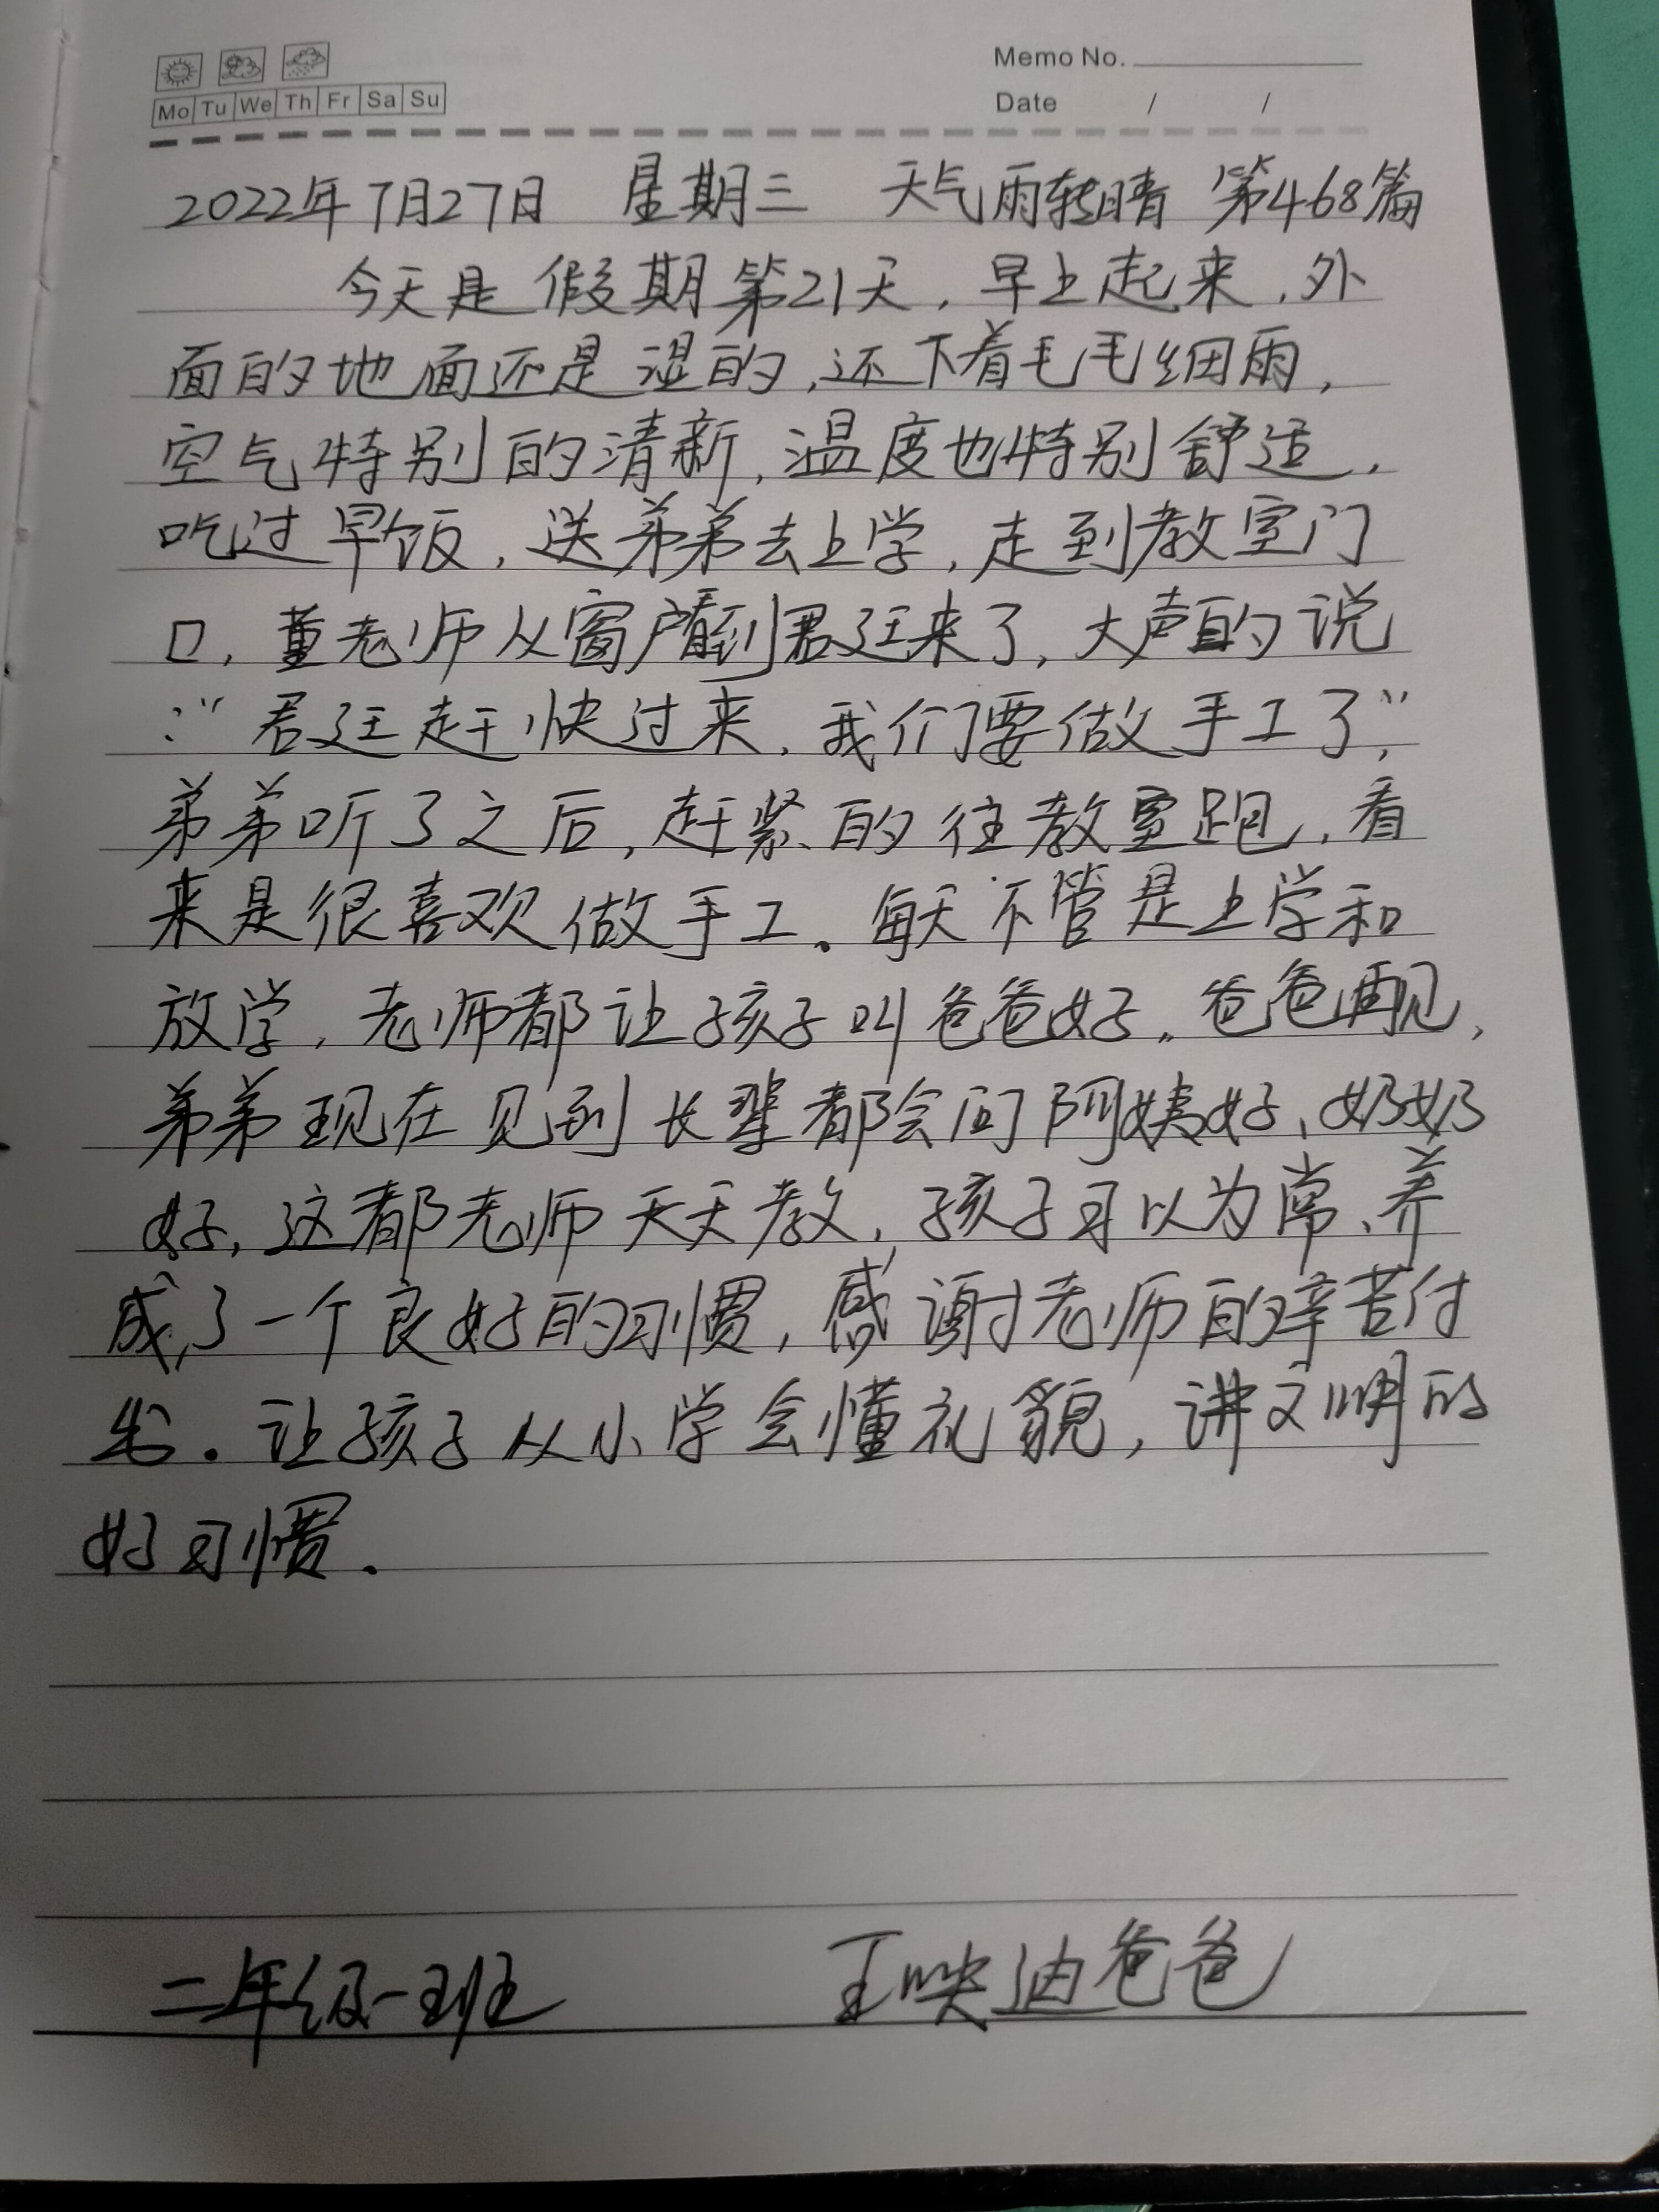 Memo No.
Mo Tu We Th Fr Sa Su
Date / /
2022年7月27日 星期三 天气雨转晴 第468篇
今天是假期第21天,早上起来,外
面的地面还是湿的,还下着毛毛细雨,
空气特别的清新,温度也特别舒适,
吃过早饭,送弟弟去上学,走到教室门
口,董老师从窗户看到君廷来了,大声的说
:“君廷赶快过来,我们要做手工了”,
弟弟听了之后,赶紧的往教室跑,看
来是很喜欢做手工。每天不管是上学和
放学,老师都让孩子叫爸爸好。爸爸再见,
弟弟现在见到长辈都会问阿姨好、奶奶
好,这都老师天天教,孩子习以为常、养
成了一个良好的习惯,感谢老师的辛苦付
出.让孩子从小学会懂礼貌,讲文明的
好习惯.
二年级一班 王映迪爸爸